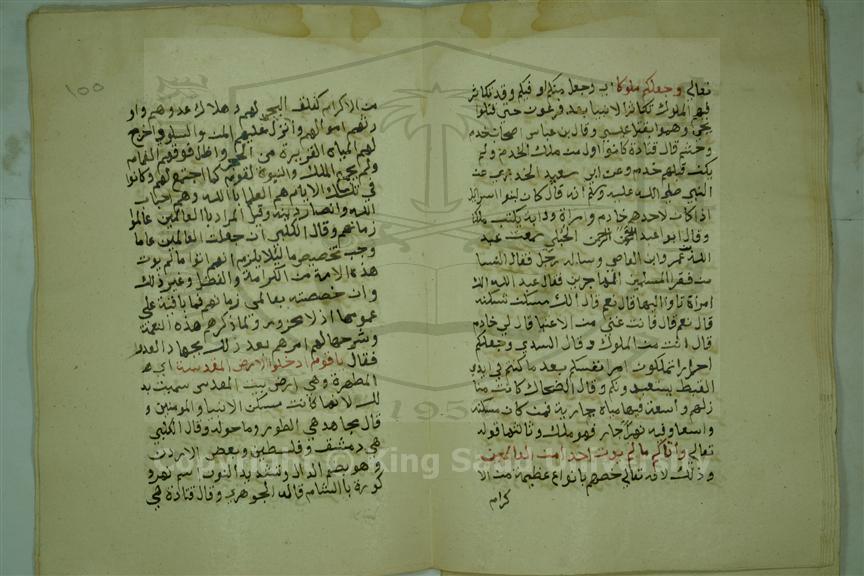 تعالى وجعلكم ملوكا اي وجعل منكم او فيكم وقد تكاثر
فيهم الملوك تكاثر الانبيا بعد فرعون حتى قتلوا
يحيى وهموا بقتل عيسى وقال بن عباس اصحاب خدم
وحشم قال قتادة كانوا اول من ملك الخدم ولم
يكن قبلهم خدم وعن ابي سعيد الخدري عن
النبي صلى الله عليه وسلم انه قال كان بنوا اسرايل
اذا كان لاحدهم خادم وامراة ودابة يكتب ملكا
وقال ابو عبد الرحمن الحبلي سمعت عبد
الله بن عمرو ابن العاص وساله رجل فقال السنا
من فقرا المسلمين المهاجرين فقال عبد الله الك
امراة تاوي اليها قال نعم قال الك مسكن تسكنه
قال نعم قال فانت غني من الاغنيا قال لي خادم
قال انت من الملوك وقال السدي وجعلكم
احرارا تملكون امر انفسكم بعد ما كنتم في ايدي
القبط يستعبدونكم وقال الضحاك كانت منا
زلهم واسعة فيها مياه جارية فمن كان مسكنه
واسعا وفيه نهر جار فهو ملك وثالثها قوله
تعالى وآتاكم ما لم يوت احدا من العالمين
وذلك لانه تعالى خصهم بانواع عظيمة من الا
كرام
١٠٠
من الاكرام كفلق البحر لهم وهلاك عدوهم واو
رثهم اموالهم وانزل عليهم المن والسلوى واخرج
لهم المياه الغزيرة من الحجر واظل فوقهم الغمام
ولم يجمع الملك والنبوة لقوم كما اجتمع لهم وكانوا
في تلك الايام هم العلما بالله وهم احباب
الله وانصار دينه وقيل المراد بالعالمين عالموا
زمانهم وقال الكلبي ان جعلت العالمين عاما
وجب تخصيص ما ليلا يلزم انهم اتوا ما لم يوت
هذه الامة من الكرامة والفضل وغير ذلك
وان خصصته بعالمي زمانهم فما باقية على
عمومها اذ لا محذور ولما ذكرهم هذه النعمة
وشرحها لهم امرهم بعد ذلك بجهاد العدو
فقال يا قوم ادخلوا الارض المقدسة اي
المطهرة وهي ارض بيت المقدس سميت بد
لك لانها كانت مسكن الانبيا والمومنين و
قال مجاهد هي الطور وما حوله وقال الكلبي
هي دمشق وفلسطين وبعض الاردن
وهو بضم الدال وتشديد النون اسم نهر و
كورة بالشام قاله الجوهري وقال قتادة هي
Copyright © King Saud University
195